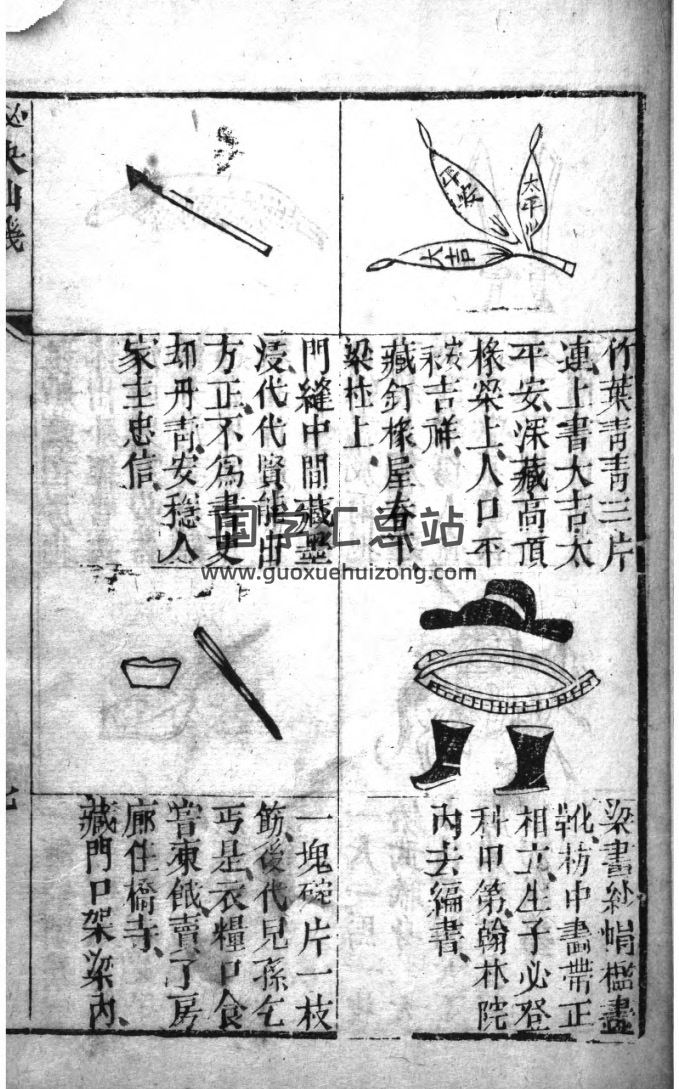 太平
平安
大吉
竹葉青青三片
連上書大吉太
平安深藏高頂
椽梁上人口平
安永吉祥
藏釘椽屋脊下
梁柱上
門縫中間藏墨
浸代代賢能出
方正不爲書吏
却丹青安穩人
家主忠信
梁畫紗帽檻畫
靴枋中畫帶正
相立生子必登
科甲第翰林院
內去編書
一塊碗片一枝
筯後代兒孫乞
丐是衣糧口食
嘗凍餓賣了房
廊住橋寺
藏門口架梁內
国学汇总站
www.guoxuehuizong.com